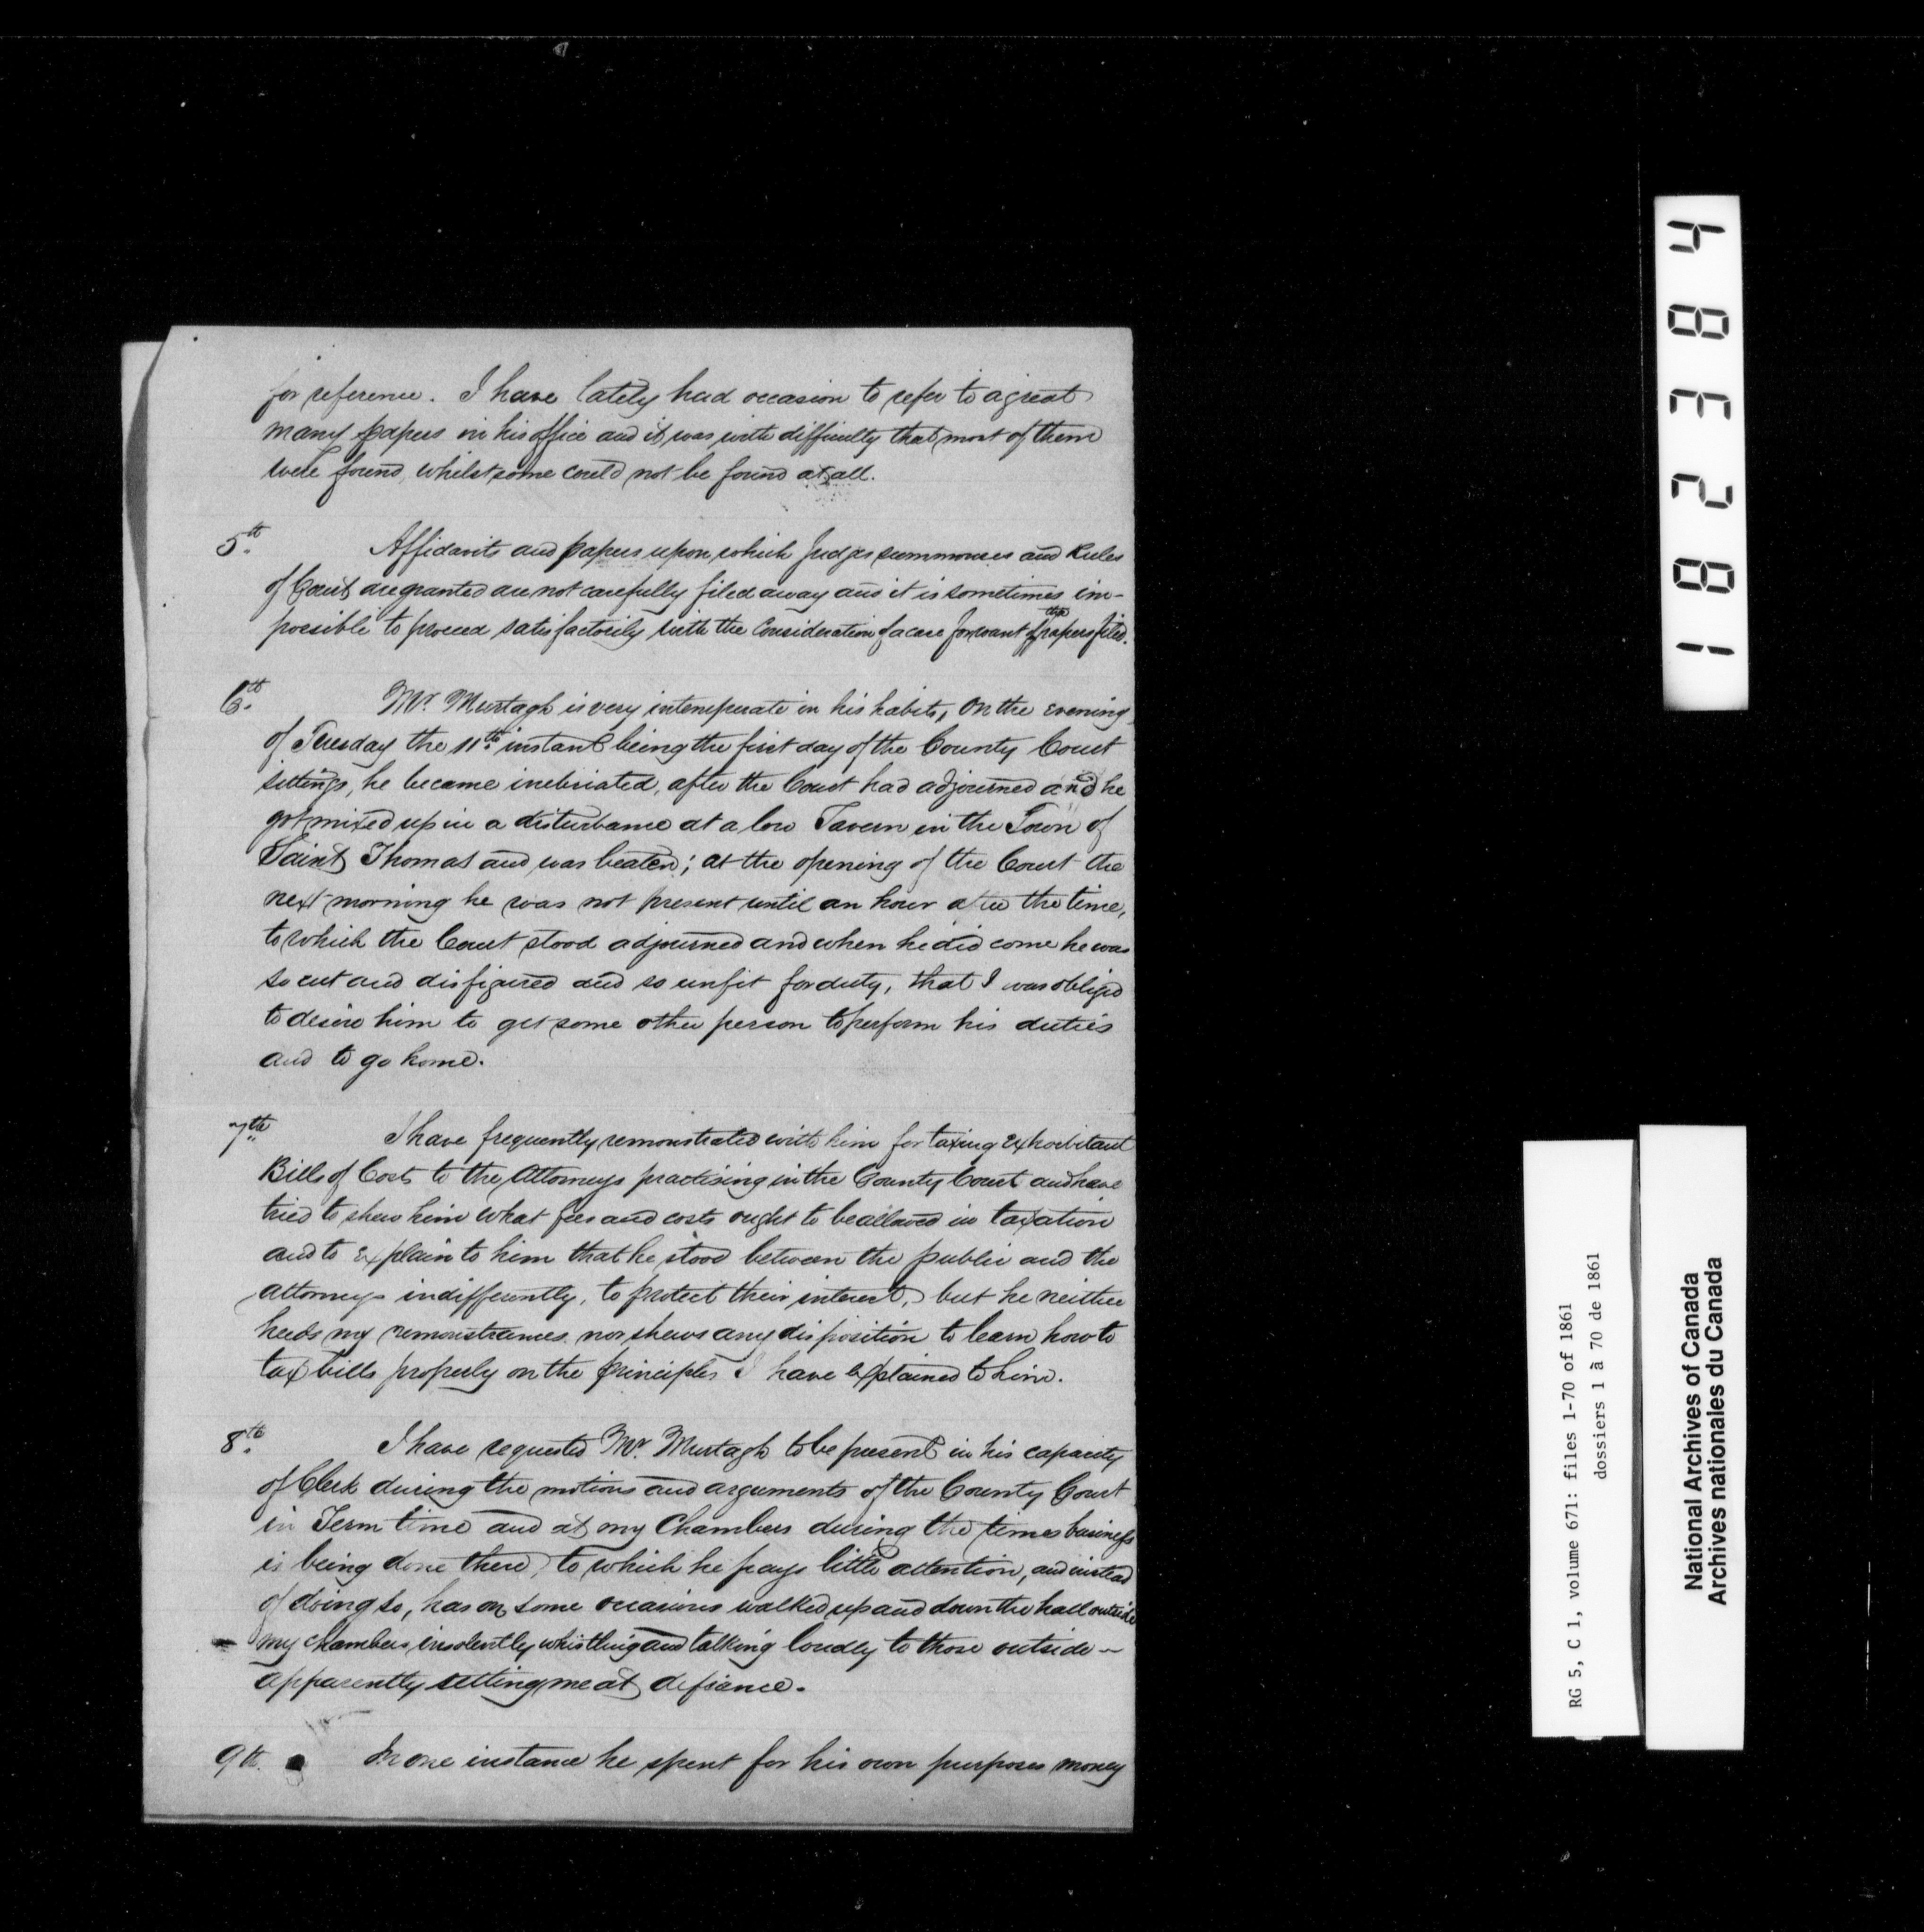 for reference. I have lately had occasion to refer to a great
many papers in his office and it was with difficulty that most of them
were found, whilst some could not be found at all.
5th. Affidavits and papers upon which Judges summonses and Rules
of Court are granted are not carefully filed away and it is sometimes im-
possible to proceed satisfactorily with the Consideration of a case for want of the papers filed.
6th. Mr. Murtagh is very intemperate in his habits, On the evening
of Tuesday the 11th instant being the first day of the County Court
sittings, he became inebriated, after the Court had adjourned and he
got mixed up in a disturbance at a low Tavern in the Town of
Saint Thomas and was beaten; at the opening of the Court the
next morning he was not present until an hour after the time,
to which the Court stood adjourned and when he did come he was
so cut and disfigured and so unfit for duty, that I was obliged
to desire him to get some other person to perform his duties
and to go home.
7th. I have frequently remonstrated with him for taxing exhorbitant
Bills of Costs to the Attorneys practising in the County Court and have
tried to shew him what fees and costs ought to be allowed in taxation
and to explain to him that he stood between the public and the
attorneys indifferently, to protect their interest, but he neither
heeds my remonstrances nor shews any disposition to learn how to
tax bills properly on the principles I have explained to him.
8th. I have requested Mr. Murtagh to be present in his capacity
of Clerk during the motions and arguments of the County Court
in Term time and at my Chambers during the times business
is being done there, to which he pays little attention, and instead
of doing so, has on some occasions walked up and down the hall outside
my chambers insolently whistling and talking loudly to those outside -
apparently setting me at defiance.
9th. In one instance he spent for his own purposes money
182384
RG 5, C 1, volume 671: files 1-70 of 1861
dossiers 1 à 70 de 1861
National Archives of Canada
Archives nationales du Canada